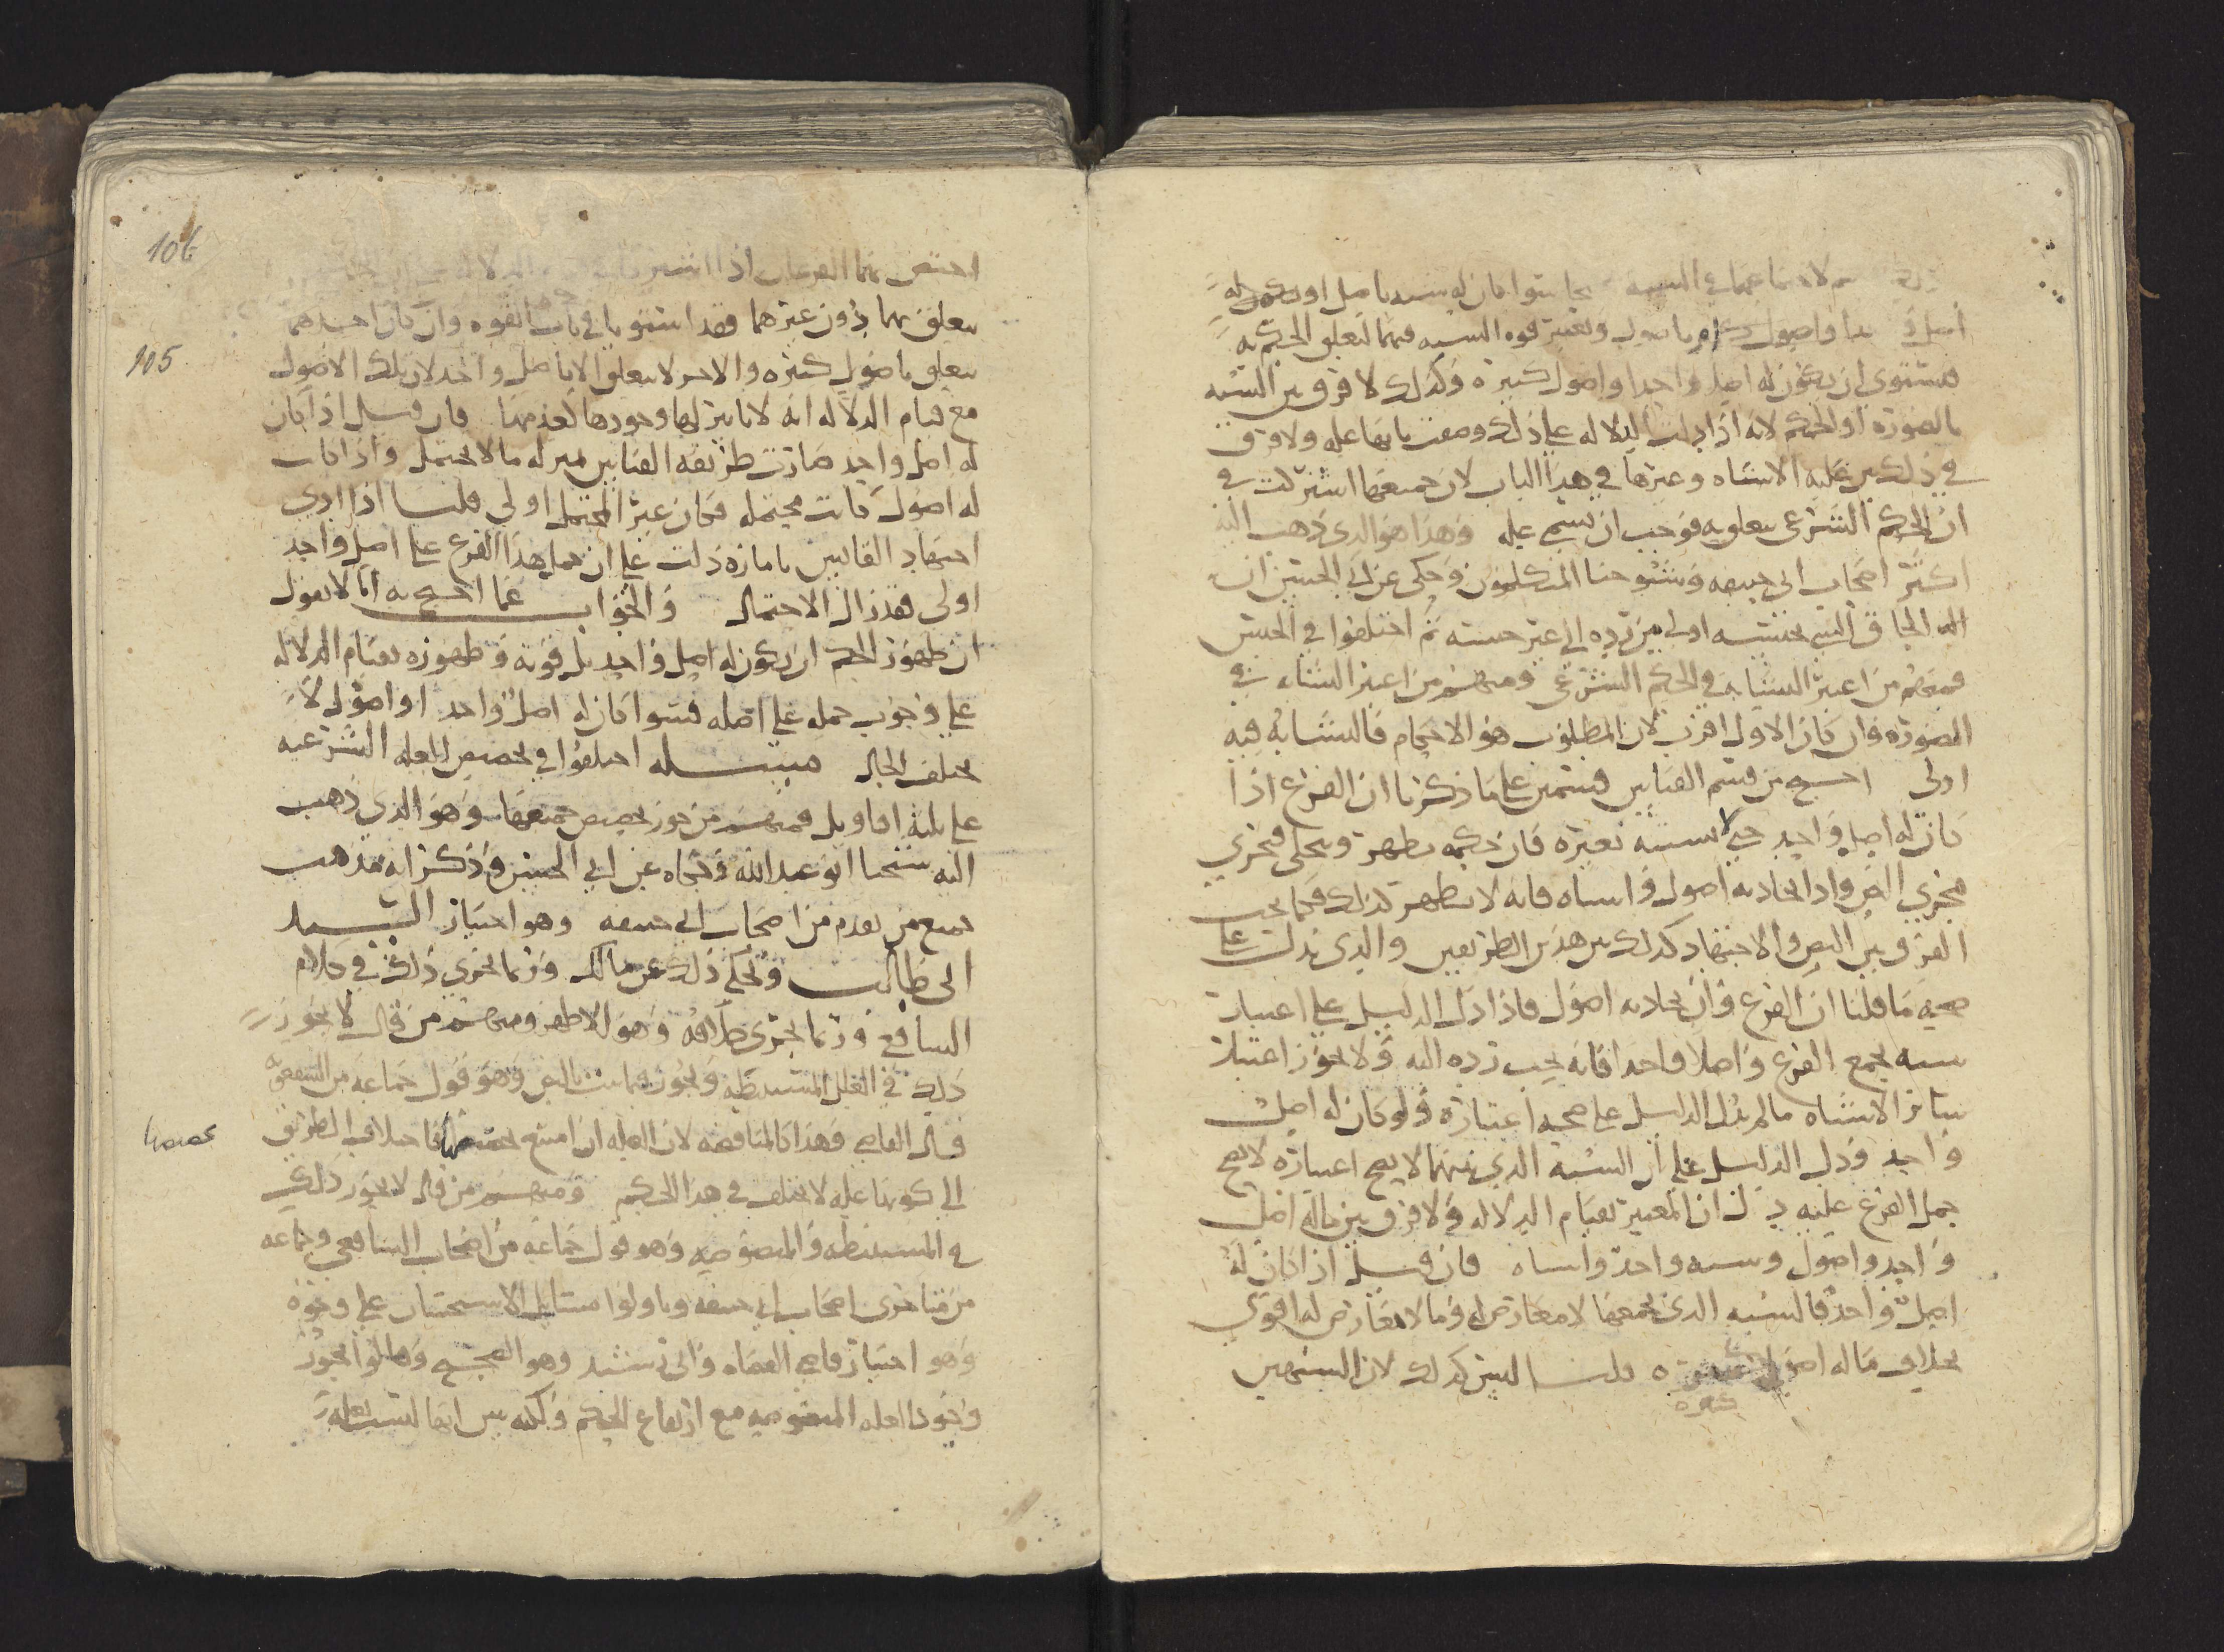 لاجتماعهما في الشبه سوا كان له شبه باصل او يكون له
اصل واصول باصول وتعتبر قوه الشبه فمهما تعلق الحكم به
فيستوي ان يكون له اصل واحدا واصول كثيره وكذلك لا فرق بين الشبه
بالصورة او الحكم لانه اذا دلت الدلاله على ذلك وصفت بانها عله ولا فرق
في ذلك بين غلبه الاشباه وغيرها في هذا الباب لان جميعها اشتركت في
ان الحكم الشرعي يتعلق به فوجب ان يسمى عله وهذا هو الذي ذهب اليه
اكثر اصحاب ابي حنيفه وشيوخنا المتكلمون وحكي عن ابي الحسين ان
الحاق الشي بجنسه اولى من رده الى غير جنسه ثم اختلفوا في الجنس
فمنهم من اعتبر التشابه في الحكم الشرعي ومنهم من اعتبر التشابه في
الصورة وان كان الاول اقرب لان المطلوب هو الاحكام فالتشابه فيه
اولى احتج من قسم القياس قسمين على ما ذكرنا ان الفرع اذا
كان له اصل واحد حتى لا يشتبه بغيره فان حكمه يظهر ويجلى فيجري
مجرى النص واذا تجاذبه اصول واشباه فانه لا يظهر كذلك فكما يجب
الفرق بين النص والاجتهاد كذلك بين هذين الطريقين والذي يدل على
صحه ما قلنا ان الفرع وان تجاذبه اصول فاذا دل الدليل على اعتبار
شبه يجمع الفرع واصلا واحدا فانه يجب رده اليه ولا يجوز اعتبار
سائر الاشباه ما لم يدل الدليل على صحه اعتباره ولو كان له اصل
واحد ودل الدليل على ان الشبه الذي بينهما لا يصح اعتباره لا يصح
حمل الفرع عليه دل ان المعتبر بقيام الدلاله ولا فرق بين ما له اصل
واحد واصول وشبه واحد واشباه فان قيل اذا كان له
اصل واحد فالشبه الذي يجمعهما لا معارض له وما لا معارض له اقوى
بخلاف ما له اصول كثيرة قلنا ليس كذلك لان الشبهين
كثيره
106
اختص بهما الفرعان اذا اشتركا في
يتعلق بهما دون غيرهما فقد استويا في باب القوه وان كان احدهما
105
يتعلق باصول كثيره والاخر لا يتعلق الا باصل واحد لان تلك الاصول
مع قيام الدلاله انه لا تاثير لها وجودها كعدمها فان قيل اذا كان
له اصل واحد صارت طريقه القياس بمنزله ما لا يحتمل واذا كانت
له اصول كانت محتمله فكان غير المحتمل اولى قلنا اذا ادى
اجتهاد القائس بامارة دلت على ان حمل هذا الفرع على اصل واحد
اولى فقد زال الاحتمال والجواب عما احتج به انا لا نقول
ان ظهور الحكم ان يكون له اصل واحد بل قوته وظهوره بقيام الدلاله
على وجوب حمله على اصله فسوا كان له اصل واحد او اصول لا
يختلف الحال مسئله اختلفوا في تخصيص العله الشرعيه
على ثلثه اقاويل فمنهم من جوز تخصيص جميعها وهو الذي ذهب
اليه شيخنا ابو عبدالله وحكاه عن ابي الحسين وذكر انه مذهب
جميع من تقدم من اصحاب ابي حنيفه وهو اختيار السيد
ابي طالب وحكي ذلك عن مالك وربما يجري ذلك في كلام
الشافعي وربما يجري خلافه وهو الاظهر ومنهم من قال لا يجوز
ذلك في العلل المستنبطه ويجوز فيما ثبت بالنص وهو قول جماعه من الشفعويه
قال القاضي وهذا كالمناقضه لان العله ان امتنع تخصيصها فاختلاف الطريق
الى كونها عله لا يختلف في هذا الحكم ومنهم من قال لا يجوز ذلك
في المستنبطه والمنصوصه وهو قول جماعه من اصحاب الشافعي وجماعه
من متاخري اصحاب ابي حنيفه وتاولوا مسائل الاستحسان على وجوه
وهو اختيار قاضي القضاه وابي رشيد وهو الصحيح وقالوا يجوز
وجود العله المنصوصه مع ارتفاع الحكم ولكنه يبين انها ليست بعله